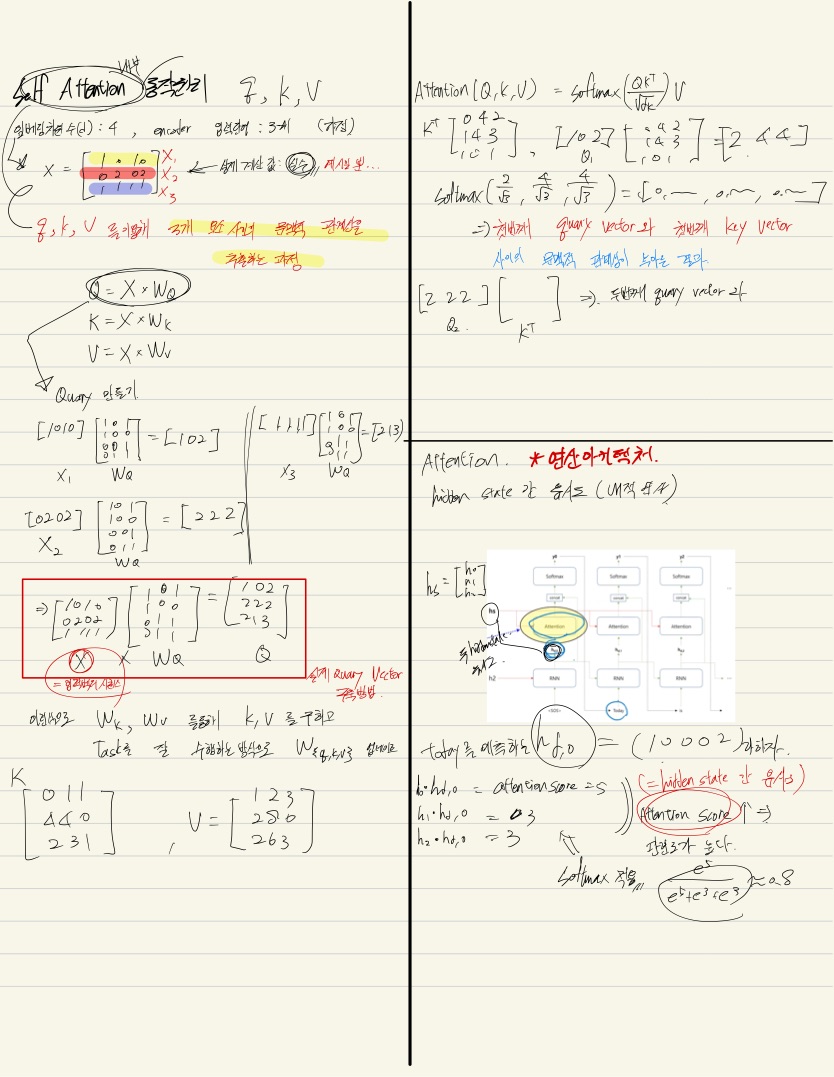 Self Attention 내부 동작원리 q, k, V
임베딩차원수(d) : 4 , encoder 입력단어 : 3개 (가정)
X = [1 0 1 0
0 2 0 2
1 1 1 1] X1
X2
X3
← 실제 계산 값 : 실수
q, k, V 를 이용해 3개 요소 사이의 문맥적 관계성을
추출하는 과정
Q = X × WQ
K = X × WK
V = X × WV
Quary 만들기
[1010] [1 0 1
1 0 0
0 0 1
0 1 1] = [102]
X1 WQ
[1 1 1 1] [1 0 1
1 0 0
0 0 1
0 1 1] = [213]
X3 WQ
[0202] [1 0 1
1 0 0
0 0 1
0 1 1] = [2 2 2]
X2 WQ
⇒ [1010
0202
1111] [1 0 1
1 0 0
0 1 1
0 1 1] = [1 0 2
2 2 2
2 1 3]
X × WQ Q
실제 Quary Vector
구축방법
WK, WV 를 통해 k, V 를 구하고
Task를 잘 수행하는 방식으로 W를 업데이트
K
[0 1 1
4 4 0
2 3 1] , V = [1 2 3
2 8 0
2 6 3]
Attention(Q,K,V) = softmax(QKᵀ/√dk) V
Kᵀ [0 4 2
1 4 3
1 0 1] , [1 0 2] [0 4 2
1 4 3
1 0 1] = [2 4 4]
Q1
softmax(2/√3, 4/√3, 4/√3) = [0.~, 0.~, 0.~]
⇒ 첫번째 quary vector와 첫번째 key vector
사이의 문맥적 관계성이 녹아든 결과
[2 2 2] [ ] ⇒ 두번째 quary vector 와
Q2 Kᵀ
Attention. * 연산아키텍처.
hidden state 간 유사도 (내적 연산)
hs = [h0
h1
h2]
y0 y1 y2
Softmax Softmax Softmax
concat concat concat
hs
Attention Attention Attention
h2
RNN RNN RNN
<SOS> Today is
today를 예측하는 hd,0 = (1 0 0 0 2) 라하자.
h0·hd,0 = attention score = 5
h1·hd,0 = 3
h2·hd,0 = 3
(= hidden state 간 유사도)
Attention Score ↑ ⇒
관련도가 높다.
Softmax 적용
e⁵/(e⁵+e³+e³) ≈ 0.8